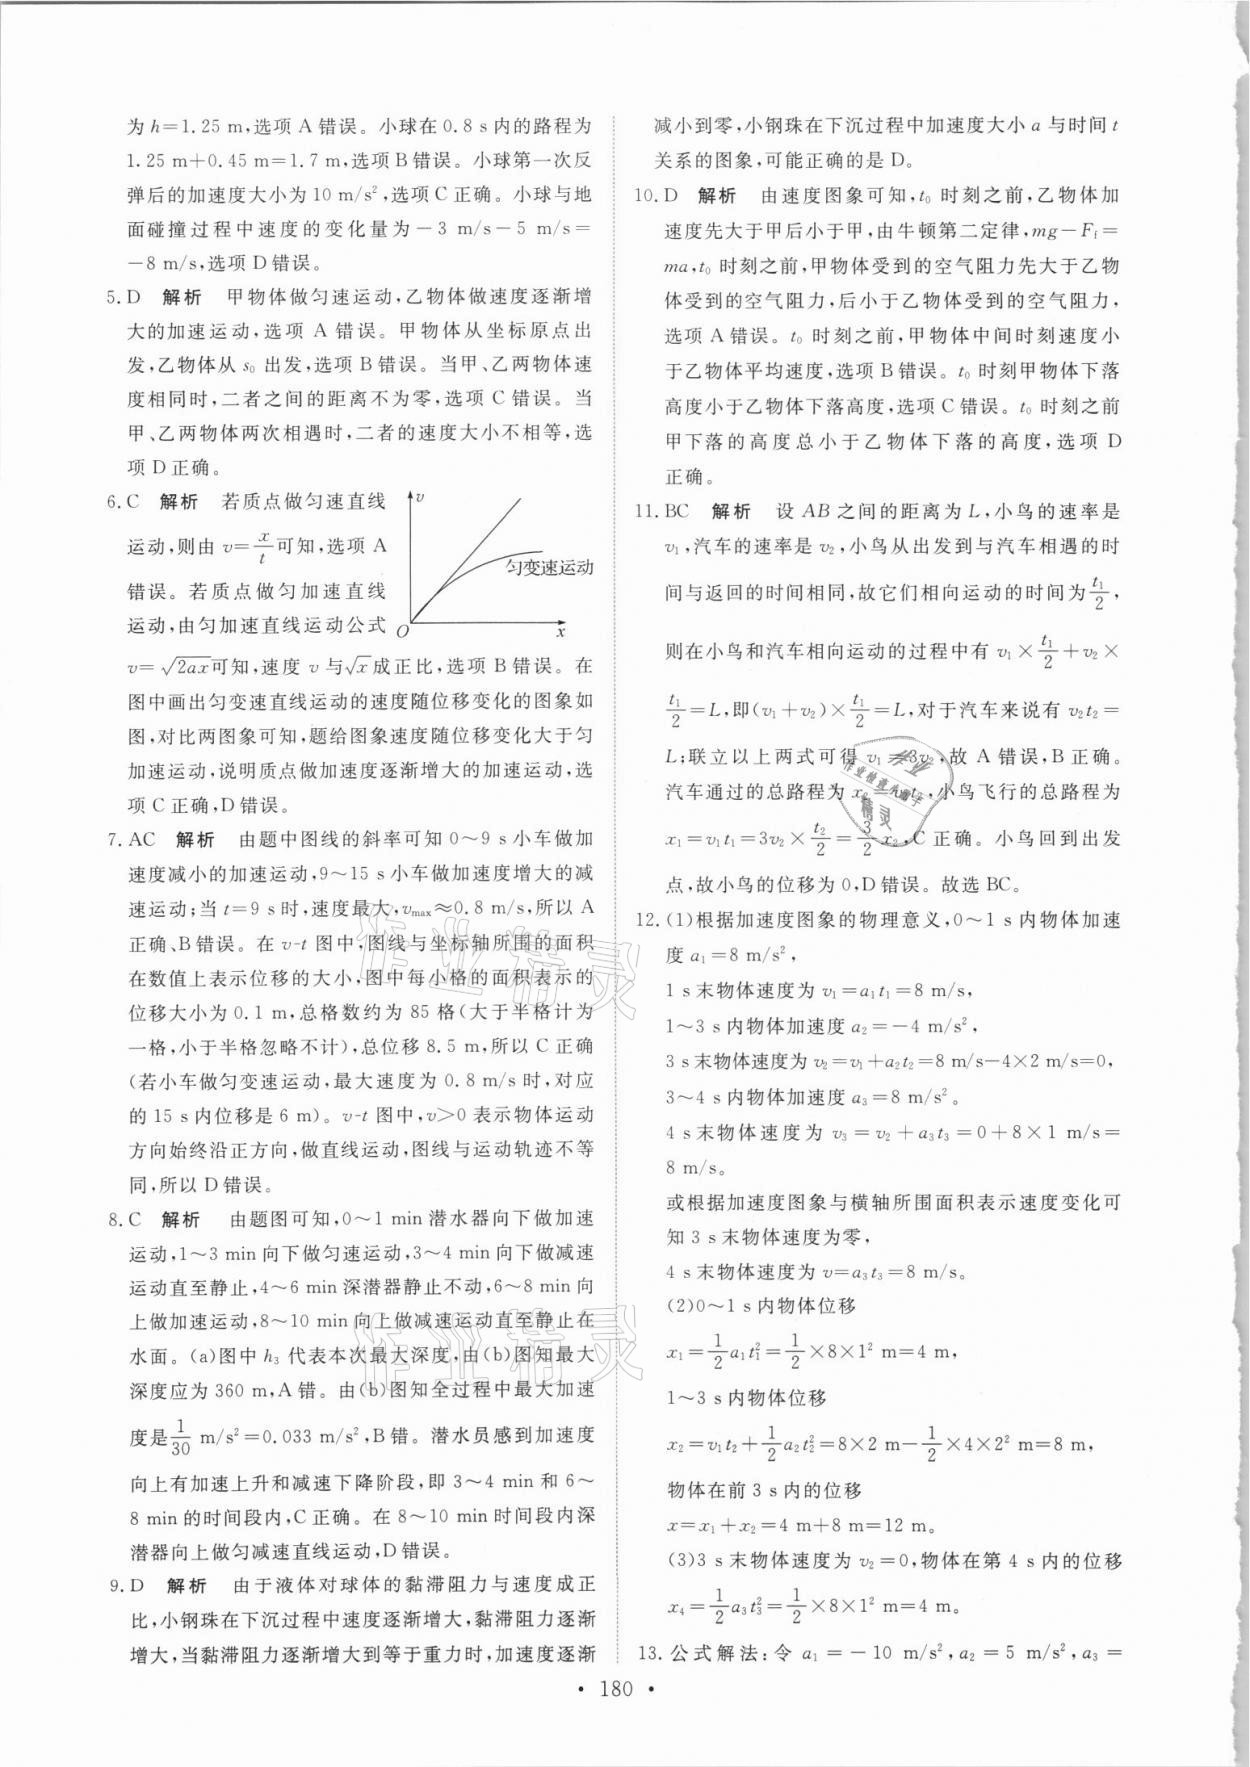 为h=1.25 m,选项A错误。小球在0.8 s内的路程为
1.25 m+0.45 m=1.7 m,选项B错误。小球第一次反
弹后的加速度大小为10 m/s²,选项C正确。小球与地
面碰撞过程中速度的变化量为-3 m/s-5 m/s=
-8 m/s,选项D错误。
5. D 解析 甲物体做匀速运动,乙物体做速度逐渐增
大的加速运动,选项A错误。甲物体从坐标原点出
发,乙物体从s₀出发,选项B错误。当甲、乙两物体速
度相同时,二者之间的距离不为零,选项C错误。当
甲、乙两物体两次相遇时,二者的速度大小不相等,选
项D正确。
6. C 解析 若质点做匀速直线
运动,则由v=x/t可知,选项A
错误。若质点做匀加速直线
运动,由匀加速直线运动公式
v=√2ax可知,速度v与√x成正比,选项B错误。在
图中画出匀变速直线运动的速度随位移变化的图象如
图,对比两图象可知,题给图象速度随位移变化大于匀
加速运动,说明质点做加速度逐渐增大的加速运动,选
项C正确,D错误。
v
匀变速运动
O
x
7. AC 解析 由题中图线的斜率可知0～9 s小车做加
速度减小的加速运动,9～15 s小车做加速度增大的减
速运动;当t=9 s时,速度最大,vmax≈0.8 m/s,所以A
正确、B错误。在v-t图中,图线与坐标轴所围的面积
在数值上表示位移的大小,图中每小格的面积表示的
位移大小为0.1 m,总格数约为85格(大于半格计为
一格,小于半格忽略不计),总位移8.5 m,所以C正确
(若小车做匀变速运动,最大速度为0.8 m/s时,对应
的15 s内位移是6 m)。v-t图中,v>0表示物体运动
方向始终沿正方向,做直线运动,图线与运动轨迹不等
同,所以D错误。
8. C 解析 由题图可知,0～1 min潜水器向下做加速
运动,1～3 min向下做匀速运动,3～4 min向下做减速
运动直至静止,4～6 min深潜器静止不动,6～8 min向
上做加速运动,8～10 min向上做减速运动直至静止在
水面。(a)图中h₃代表本次最大深度,由(b)图知最大
深度应为360 m,A错。由(b)图知全过程中最大加速
度是1/30 m/s²=0.033 m/s²,B错。潜水员感到加速度
向上有加速上升和减速下降阶段,即3～4 min和6～
8 min的时间段内,C正确。在8～10 min时间段内深
潜器向上做匀减速直线运动,D错误。
9. D 解析 由于液体对球体的黏滞阻力与速度成正
比,小钢珠在下沉过程中速度逐渐增大,黏滞阻力逐渐
增大,当黏滞阻力逐渐增大到等于重力时,加速度逐渐
减小到零,小钢珠在下沉过程中加速度大小a与时间t
关系的图象,可能正确的是D。
10. D 解析 由速度图象可知,t₀时刻之前,乙物体加
速度先大于甲后小于甲,由牛顿第二定律,mg-Ff=
ma,t₀时刻之前,甲物体受到的空气阻力先大于乙物
体受到的空气阻力,后小于乙物体受到的空气阻力,
选项A错误。t₀时刻之前,甲物体中间时刻速度小
于乙物体平均速度,选项B错误。t₀时刻甲物体下落
高度小于乙物体下落高度,选项C错误。t₀时刻之前
甲下落的高度总小于乙物体下落的高度,选项D
正确。
11. BC 解析 设AB之间的距离为L,小鸟的速率是
v₁,汽车的速率是v₂,小鸟从出发到与汽车相遇的时
间与返回的时间相同,故它们相向运动的时间为t₁/2,
则在小鸟和汽车相向运动的过程中有v₁×t₁/2+v₂×
t₁/2=L,即(v₁+v₂)×t₁/2=L,对于汽车来说有v₂t₂=
L;联立以上两式可得v₁=3v₂,故A错误,B正确。
汽车通过的总路程为x₂=v₂t₂,小鸟飞行的总路程为
x₁=v₁t₁=3v₂×t₂/2=3/2x₂,C正确。小鸟回到出发
点,故小鸟的位移为0,D错误。故选BC。
12. (1)根据加速度图象的物理意义,0～1 s内物体加速
度a₁=8 m/s²,
1 s末物体速度为v₁=a₁t₁=8 m/s,
1～3 s内物体加速度a₂=-4 m/s²,
3 s末物体速度为v₂=v₁+a₂t₂=8 m/s-4×2 m/s=0,
3～4 s内物体加速度a₃=8 m/s²。
4 s末物体速度为v₃=v₂+a₃t₃=0+8×1 m/s=
8 m/s。
或根据加速度图象与横轴所围面积表示速度变化可
知3 s末物体速度为零,
4 s末物体速度为v=a₃t₃=8 m/s。
(2)0～1 s内物体位移
x₁=1/2a₁t₁²=1/2×8×1² m=4 m,
1～3 s内物体位移
x₂=v₁t₂+1/2a₂t₂²=8×2 m-1/2×4×2² m=8 m,
物体在前3 s内的位移
x=x₁+x₂=4 m+8 m=12 m。
(3)3 s末物体速度为v₂=0,物体在第4 s内的位移
x₄=1/2a₃t₃²=1/2×8×1² m=4 m。
13. 公式解法:令a₁=-10 m/s²,a₂=5 m/s²,a₃=
• 180 •
作业精灵
作业精灵
作业
作业检查小助手
精灵